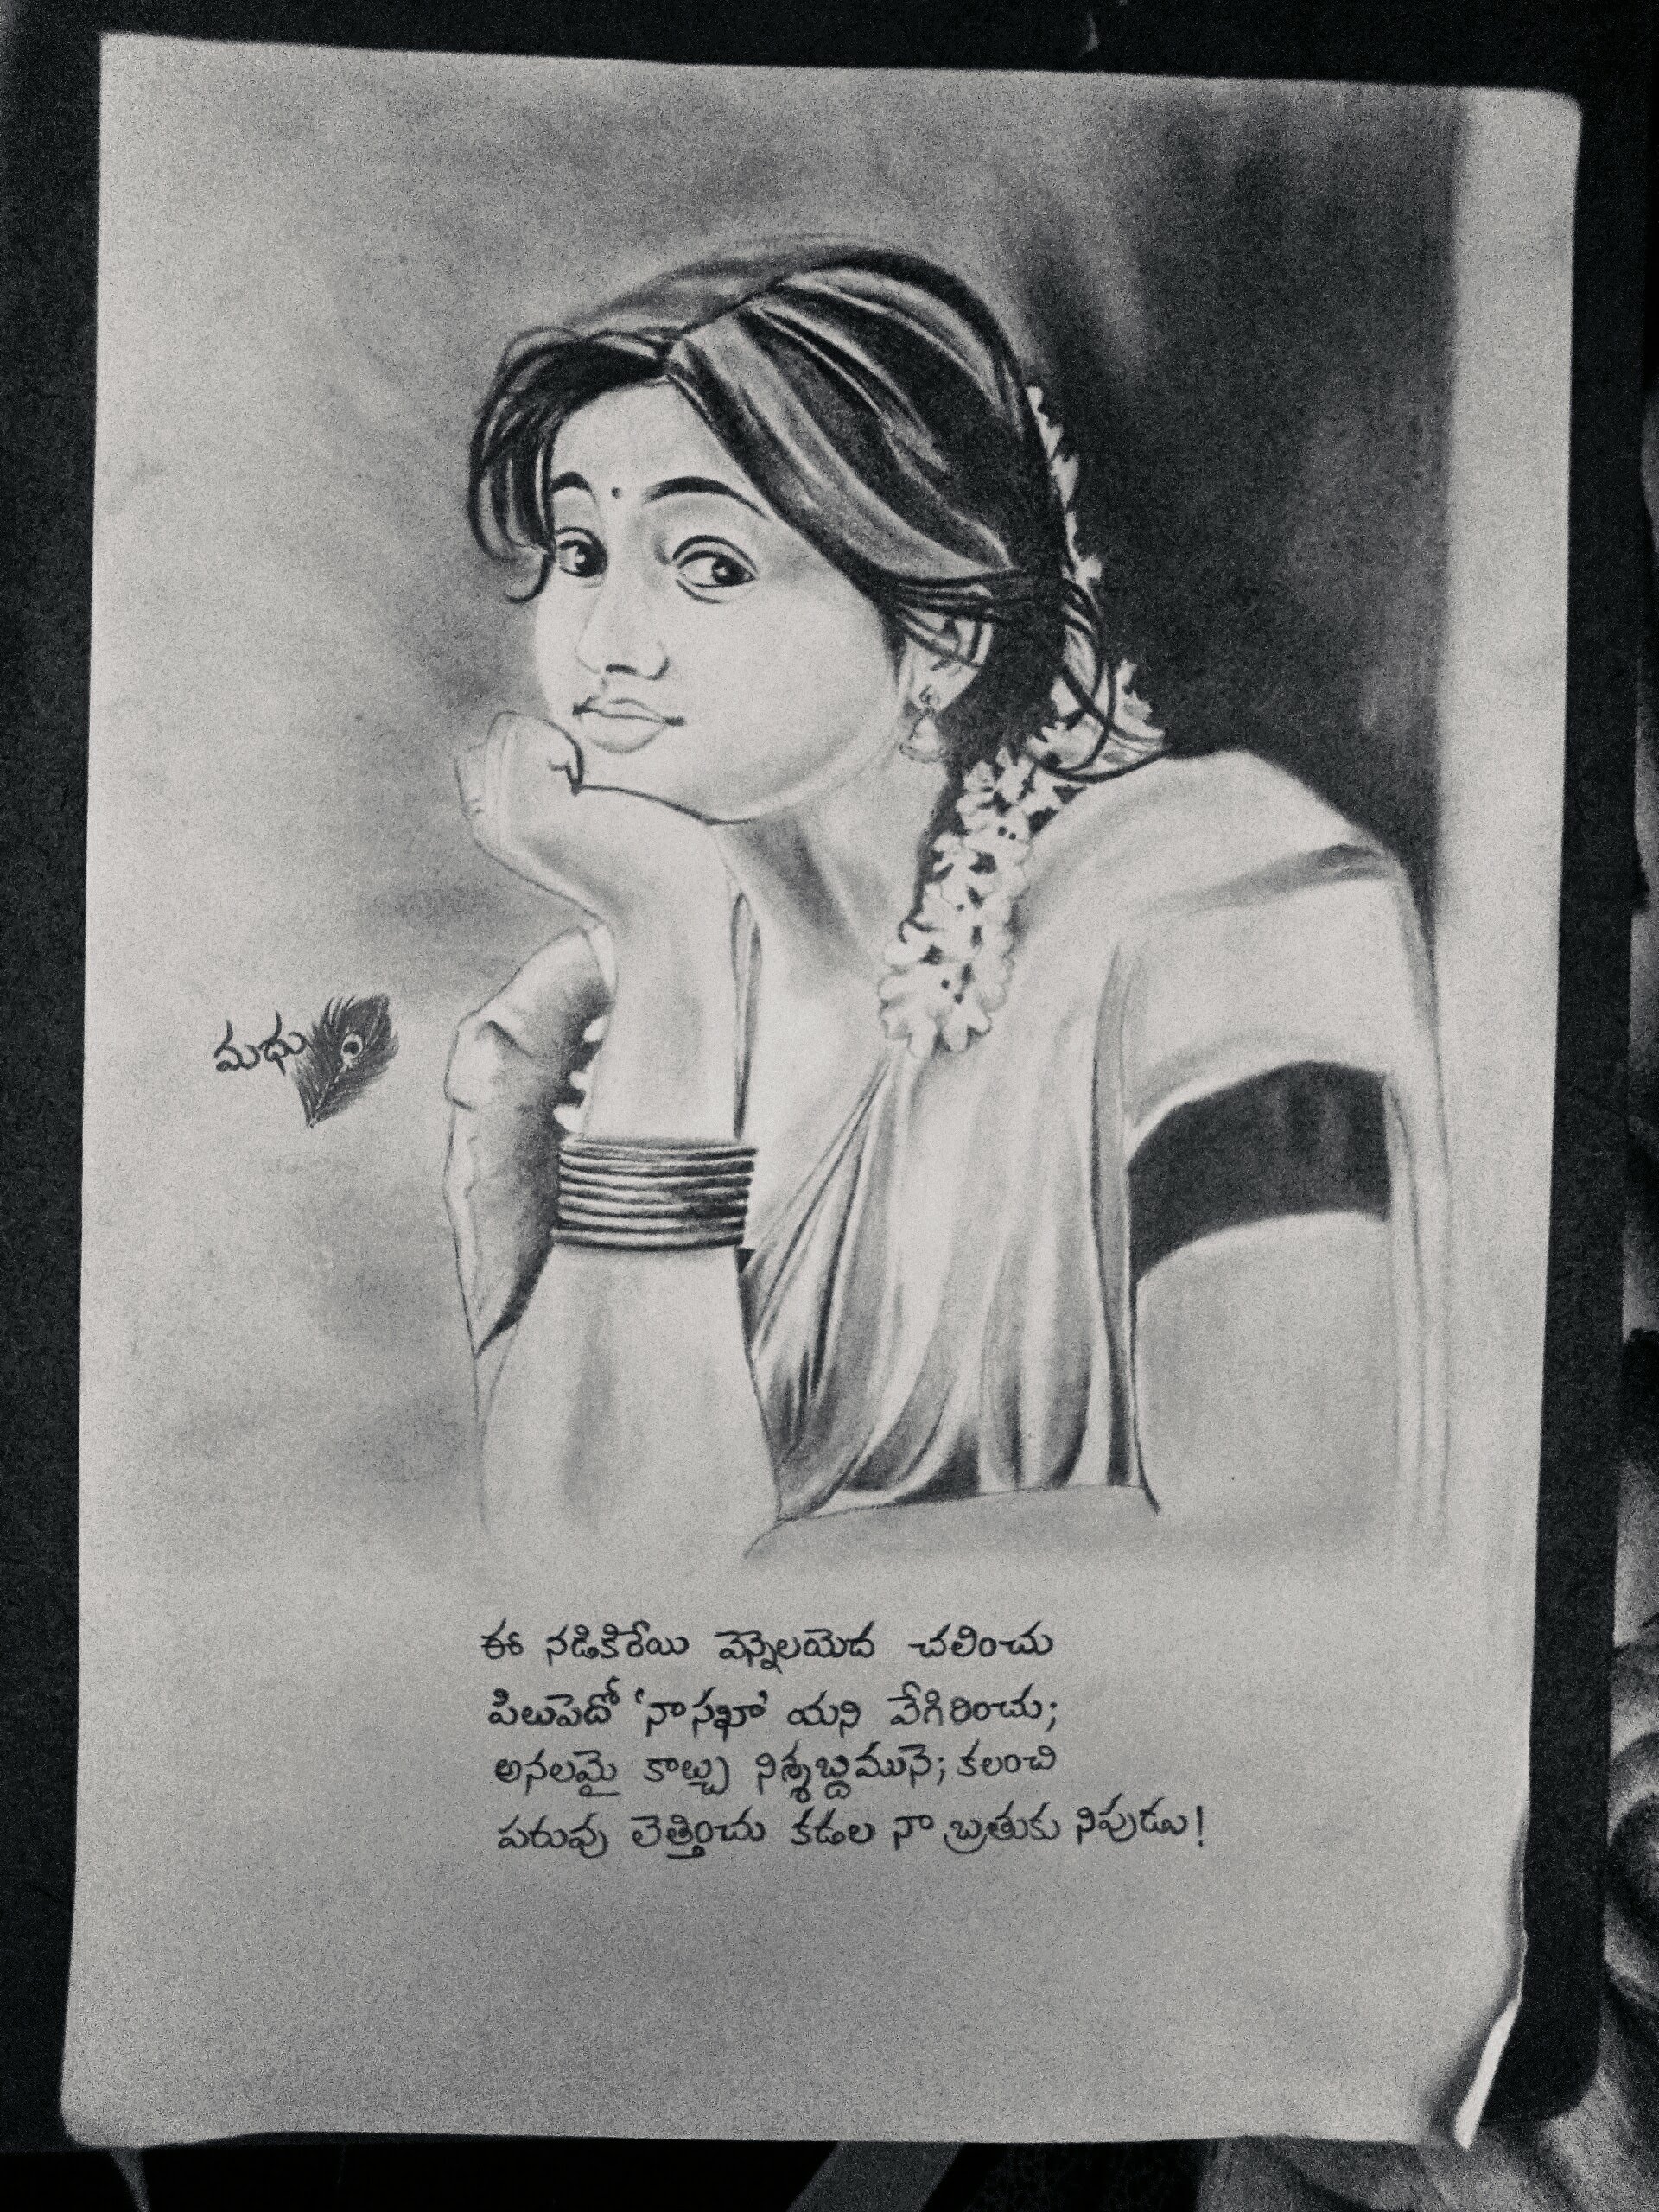 మధు
ఈ నడికిరేయి వెన్నెలయెద చలించు
పిలుపెదో 'నా సఖా' యని వేగిరించు;
అనలమై కాల్చు నిశ్శబ్దమునె; కలంచి
పరువు లెత్తించు కడల నా బ్రతుకు నిపుడు!